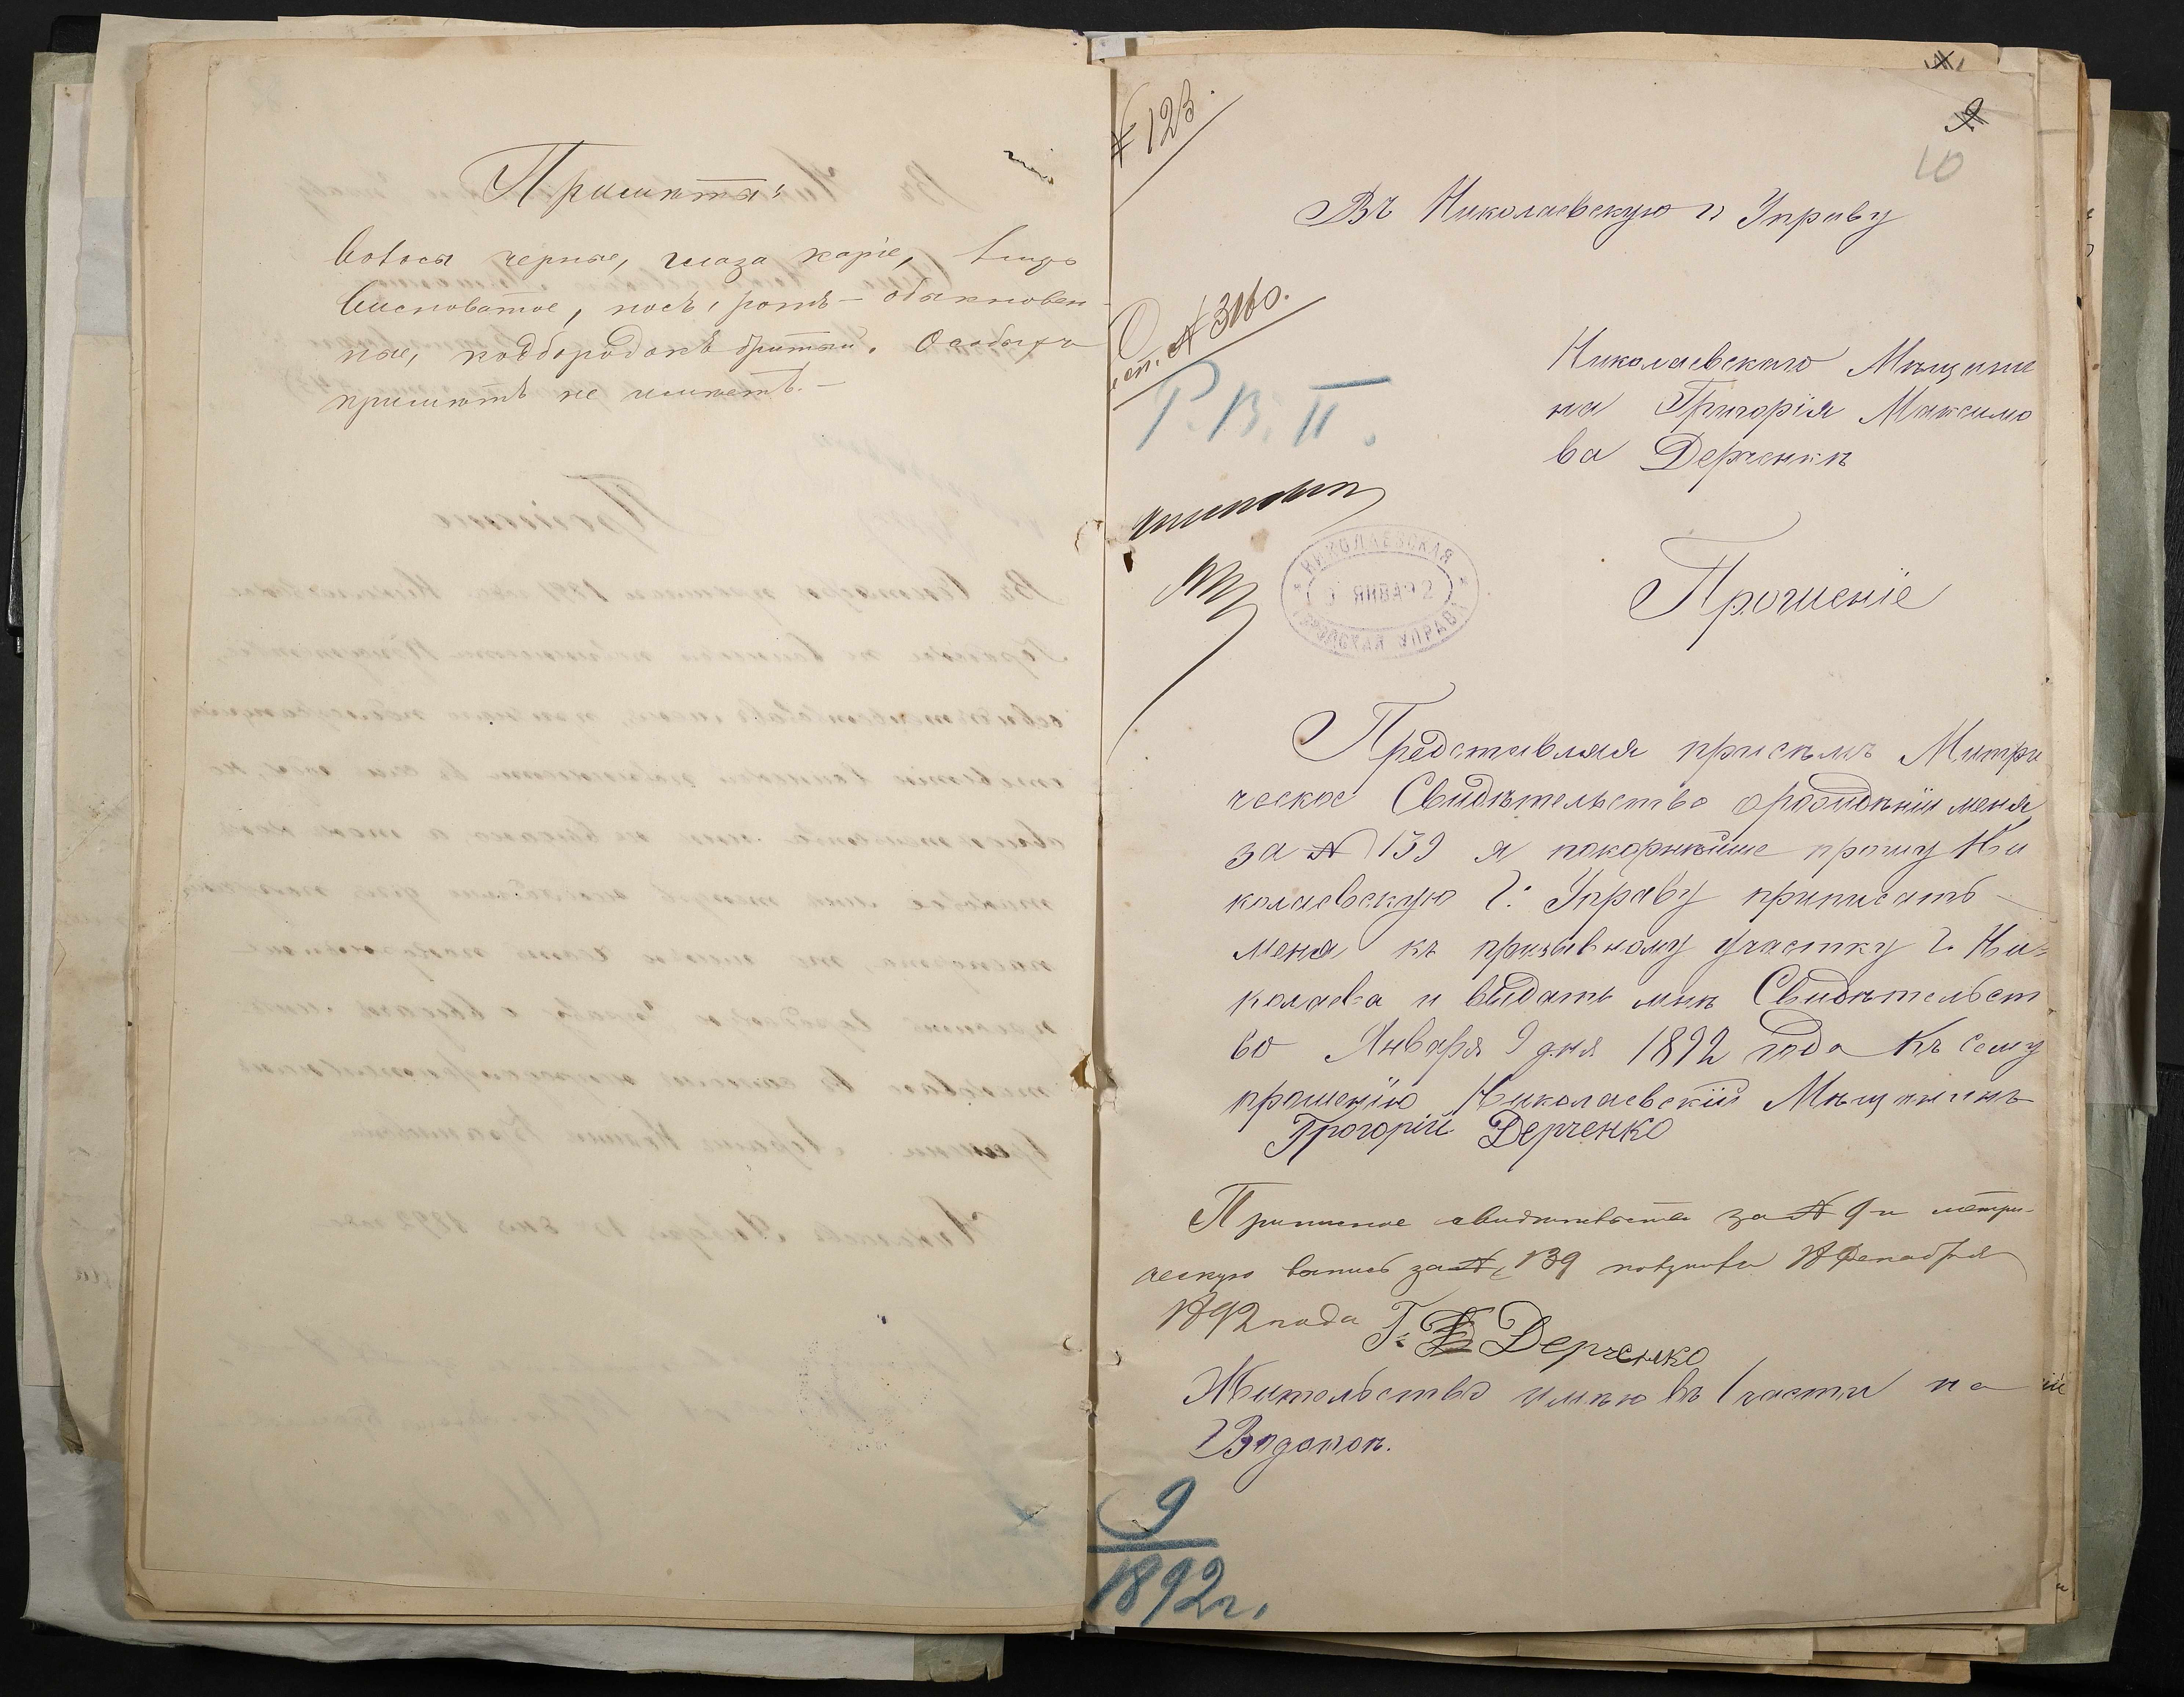 Примѣты:
Волосы черные, глаза каріе, лицо
висповатое, носъ, ротъ – обыкновен-
ные, подбородокъ бритый. Особыхъ
примѣтъ не имѣетъ. –
№ 123.
10
Въ Николаевскую г Управу
№ 3160.
Р. В. II.
Николаевскаго Мѣщани
на Григорія Максимо
ва Дерченка
исполнить
НИКОЛАЕВСКАЯ
ЯНВА 92
ГОРОДСКАЯ УПРАВА
Прошеніе
Представляя присемъ Метри
ческое Свидѣтельство орождѣніи меня
за № 139 я покорнѣйше прошу Ни
колаевскую Г. Управу приписать
меня къ призывному участку г. Ни-
колаева и выдать мнѣ Свидѣтельст
во Января 9 дня 1892 года Къ сему
прошенію Николаевскій Мѣщанинъ
Григорій Дерченко
Приписное свидѣтельство за № 9 и метри-
ческую вѣпись за № 139 получилъ 18 Декабря
1892 года Г. Дерченко
Жительство имѣю въ 1 части на
Водопоѣ.
9
1892 г.